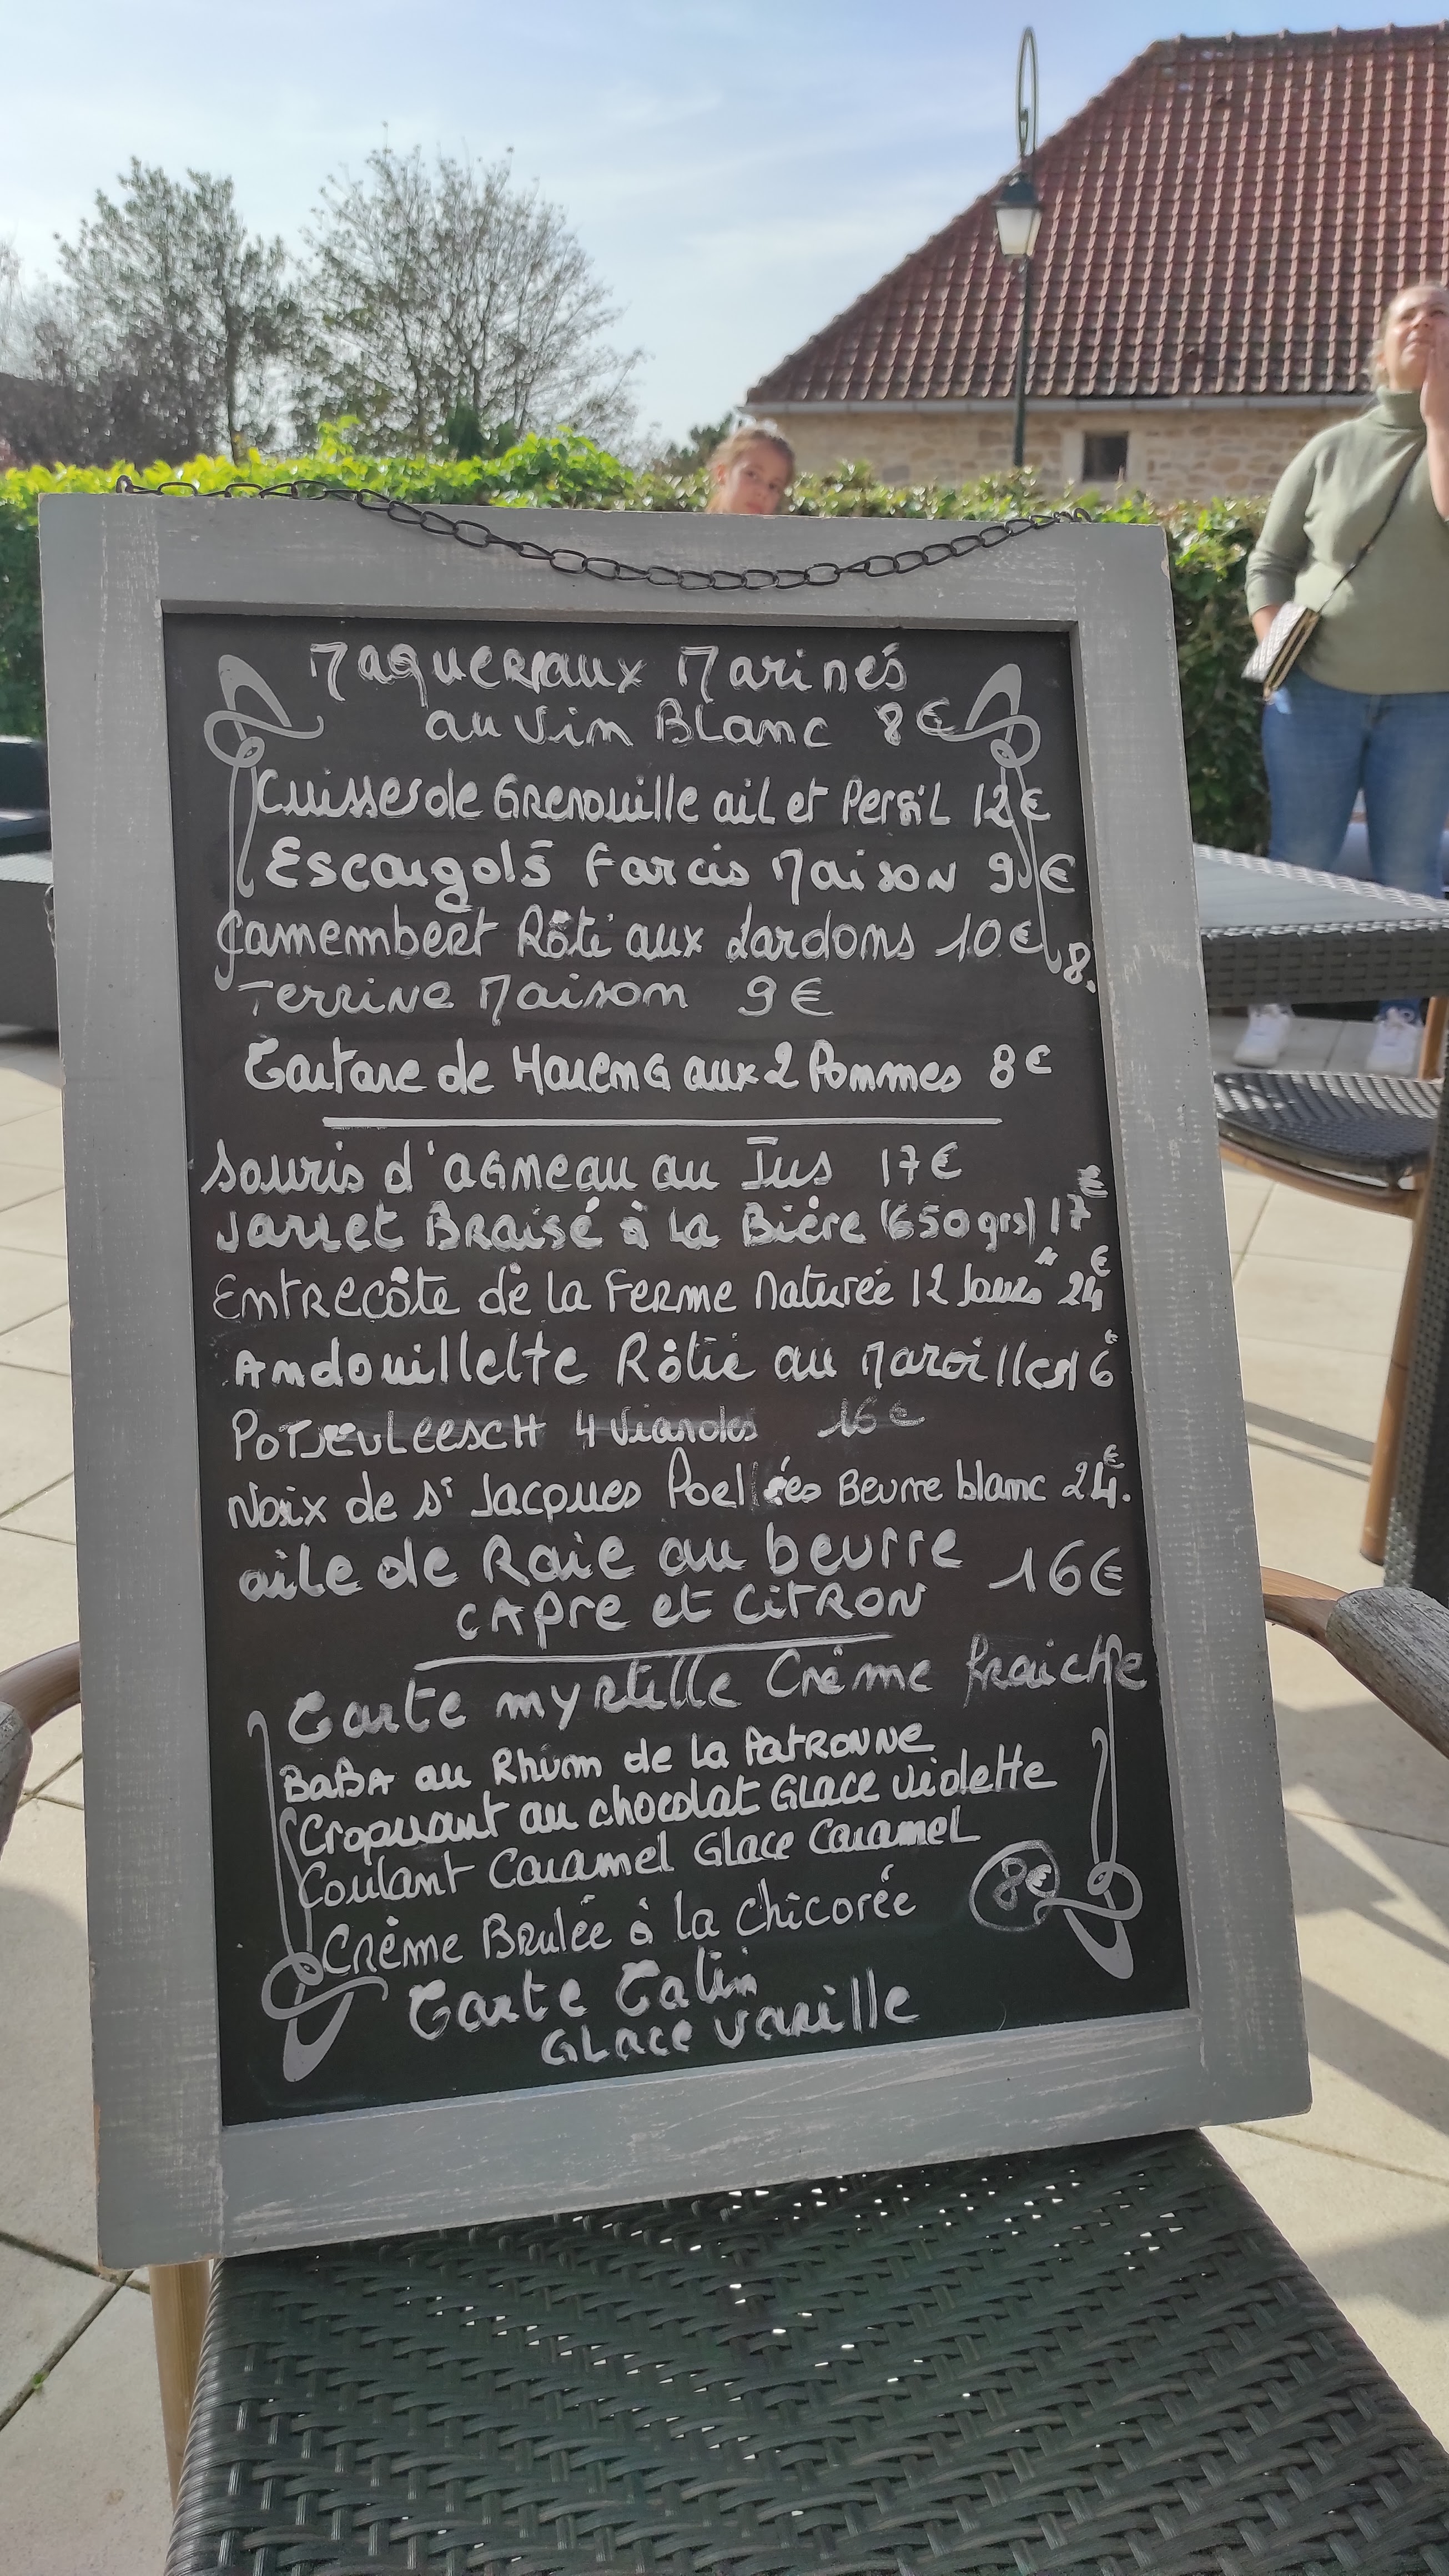 Maquereaux Marinés
au Vin Blanc 8€
Cuisses de Grenouille ail et Persil 12€
Escargots Farcis Maison 9€
Camembert Rôti aux Lardons 10€
8.
Terrine Maison 9€
Tartare de Hareng aux 2 Pommes 8€
Souris d'agneau au Jus 17€
Jarret Braisé à la Bière (650grs) 17€
Entrecôte de la Ferme maturée 12 Jours 24€
Andouillette Rôtie au Maroilles 16€
Potjevleesch 4 Viandes 16€
Noix de St Jacques Poellées Beurre blanc 24€.
aile de Raie au beurre 16€
capre et Citron
Tarte myrtille Crème fraiche
BaBA au Rhum de la Patronne
Croquant au chocolat Glace violette
Coulant Caramel Glace Caramel
8€
Crème Brulée à la chicorée
Tarte Tatin
Glace vanille